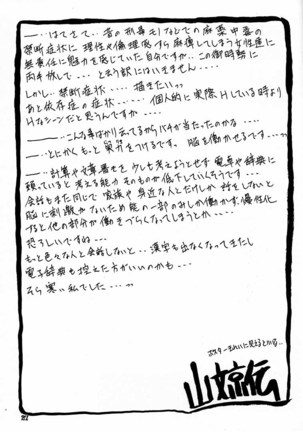 ----はてさて.. 昔の刑事モノなどでの麻薬中毒の
禁断症状に 理性や倫理感すら麻痺してしまう女性達に
無責任に魅力を感じていた自分ですが.. この御時勢に
両手放して... と言う訳にはいきません....
しかし.. 禁断症状.... 描きたいっ
あと依存症の症状..... 個人的に実際Hしている時より
Hなシーンだと思うんですが....
----こんな事ばかり云ってるからバチが当たったのかな....
----とにかくもっと 努力をつけるです、脳を働かせるです...
--計算や文章書きを 少しも考えようとせず 電卓や辞典に
頼っていると 考える能力 そのものが低下していくそうです...
会話もまた同じで 家族や身近な人とだけしか 話をしないと
脳に刺激がないため能の一部のみしか働かず.慢性化
すると他の部分が働きづらくなってしまうとか....
恐ろしいですね...
もっと色々な人と会話しないと... 漢字も出なくなってきたし
電子辞典も控えた方がいいのかも...
うら寒い私でした....
ポスターきれいに見えるとかる..
山文京伝
27